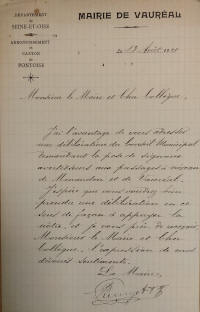 DÉPARTEMENT
DE
SEINE-ET-OISE
ARRONDISSEMENT
ET
CANTON
DE
PONTOISE
MAIRIE DE VAURÉAL
le 13 Août
Monsieur le Maire et Cher Collègue,
J'ai l'avantage de vous adresser
une délibération du Conseil Municipal
demandant la pose de signaux
avertisseurs aux passages à niveau
de Menandon et de Vauréal.
J'espère que vous voudrez bien
prendre une délibération en ce
sens de façon à appuyer la
nôtre, et je vous prie de recevoir
Monsieur le Maire et Cher
Collègue, l'expression de mes
dévoués sentiments.
Le Maire,